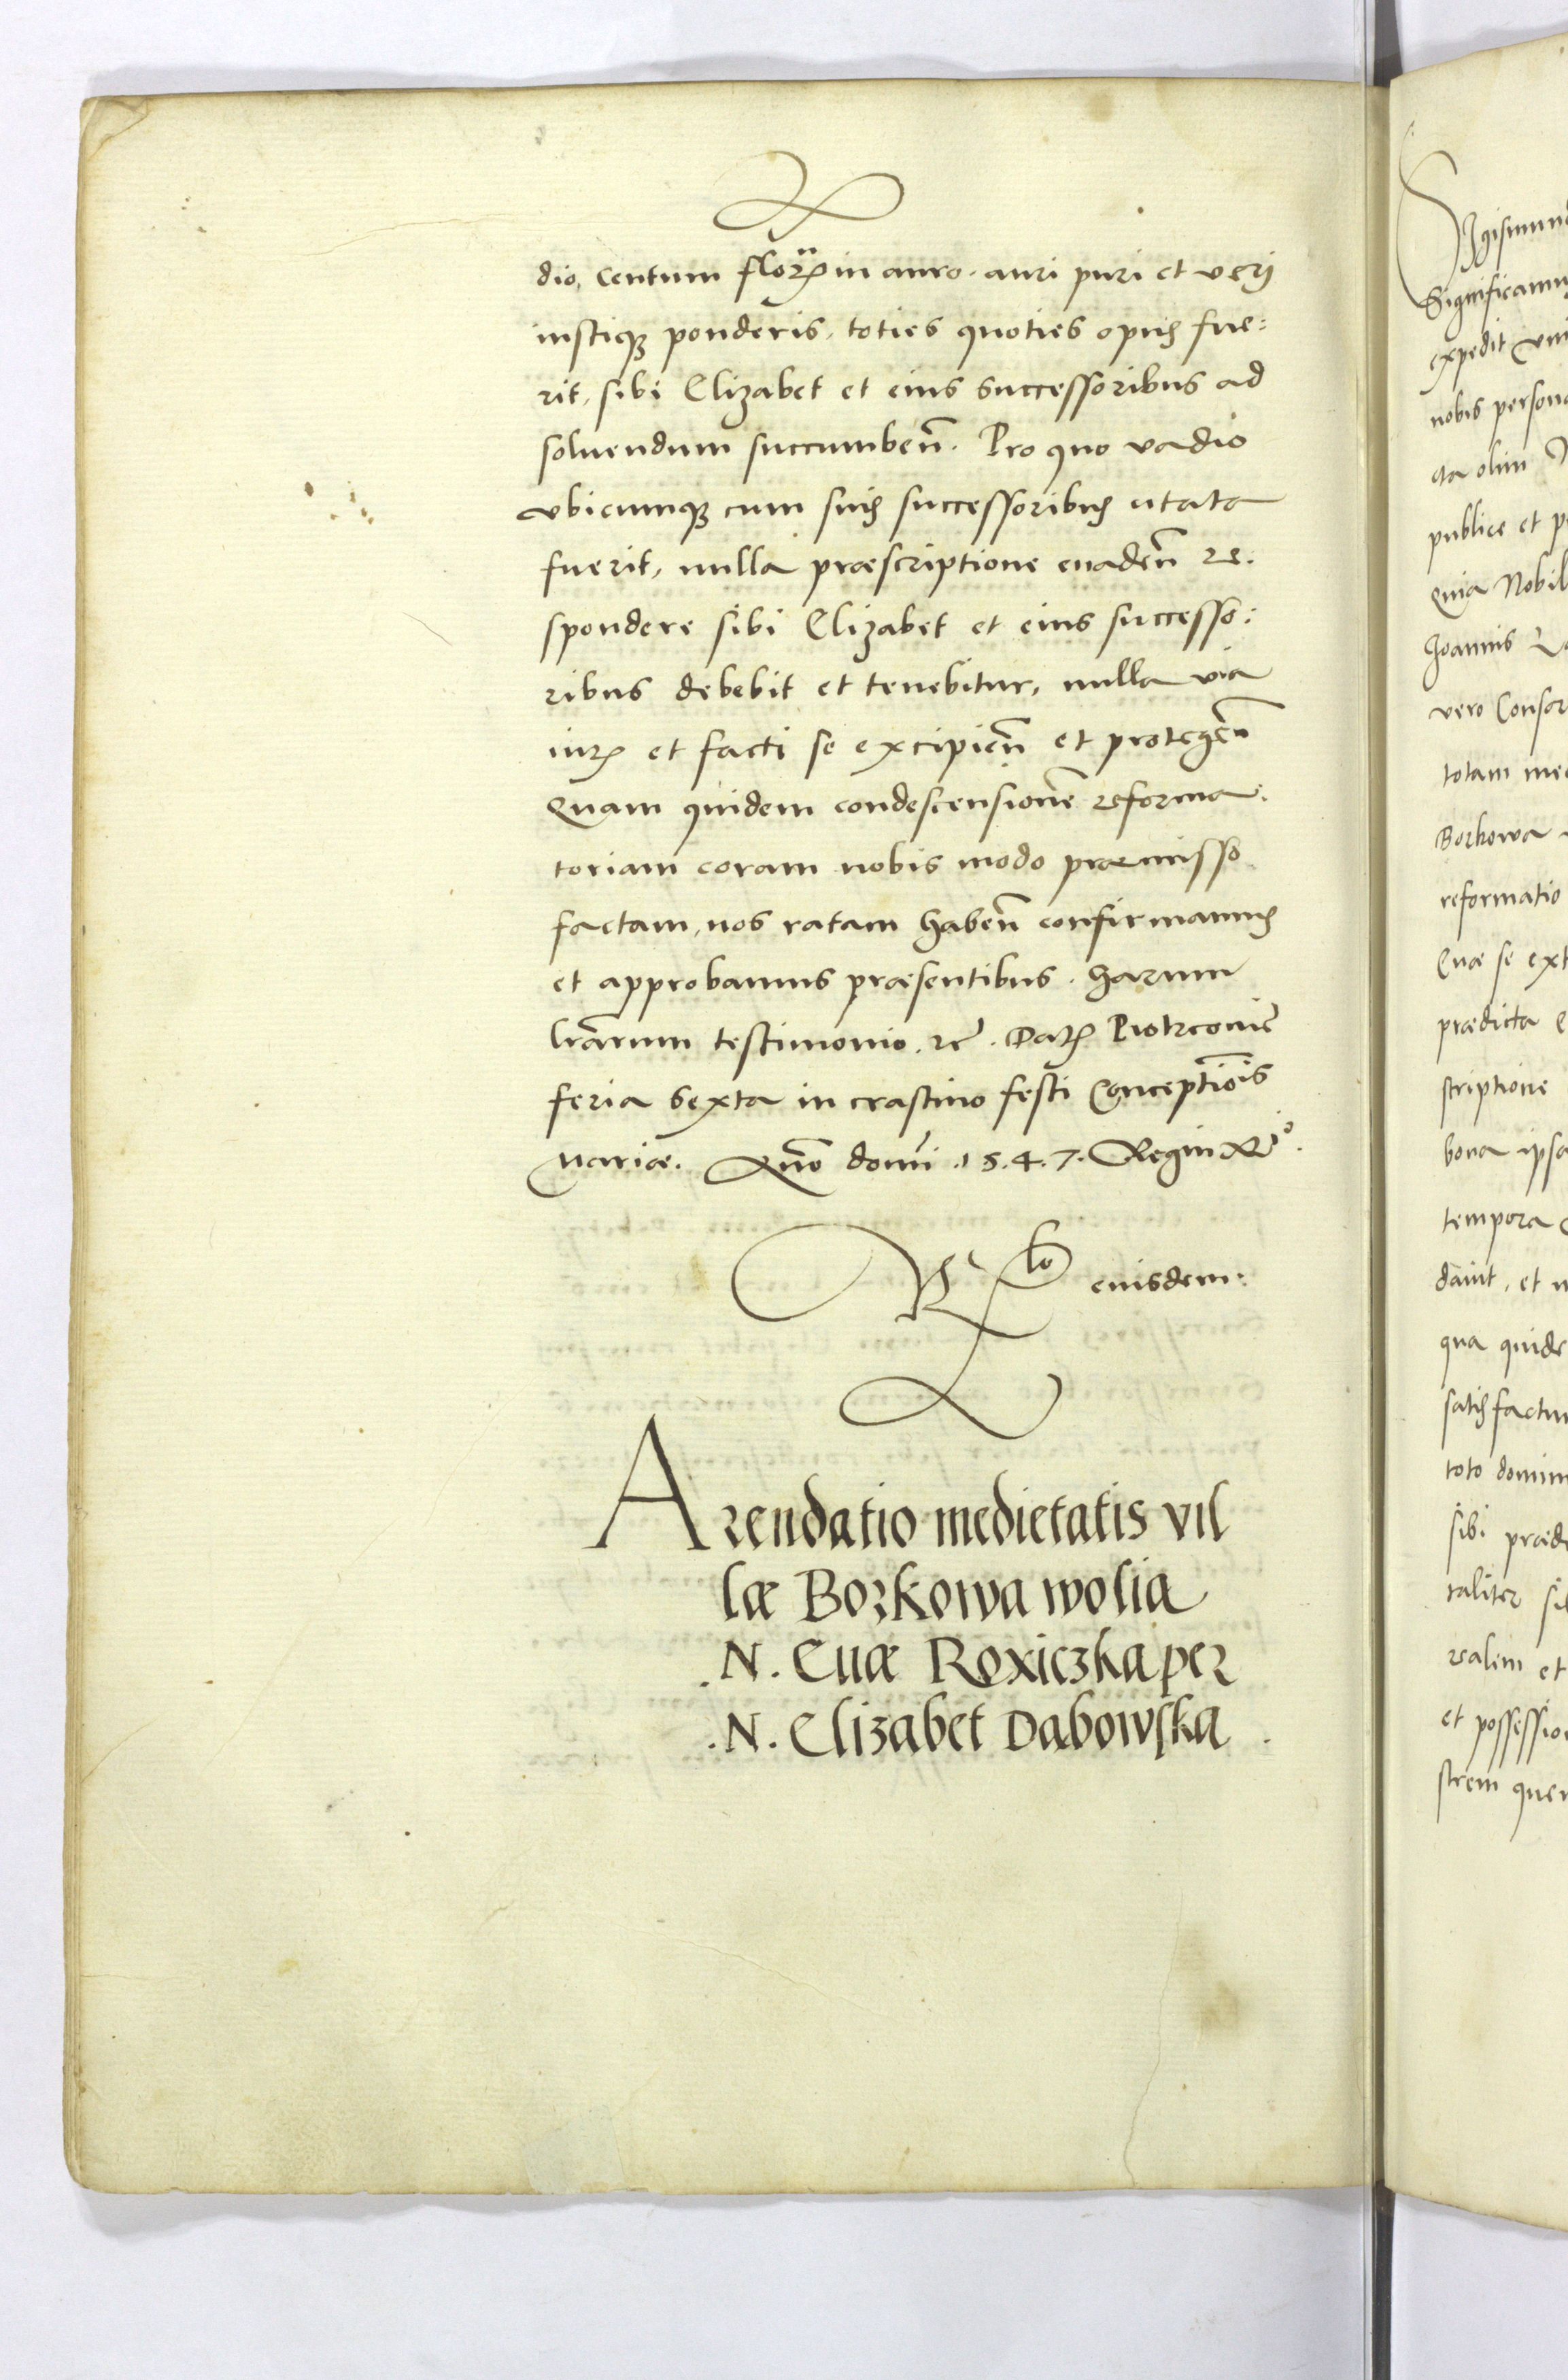 dio, centum florꝝ in auro. auri puri et verj
iustiqꝫ ponderis, toties quoties opus fue:
rit, sibi Elizabet et eius successoribus ad
soluendum succumbeñ. Pro quo vadio
vbicumqꝫ cum suis successoribus citata
fuerit, nulla præscriptione euadeñ re:
spondere sibi Elizabet et eius successo:
ribus debebit et tenebitur, nulla via
iurꝭ et facti se excipieñ et protegeñ
Quam quidem condescensionẽ reforma:
toriam coram nobis modo præmisso
factam, nos ratam habeñ confirmamus
et approbamus præsentibus. harum
lr̃arum testimonio. rc̃. Datꝭ Piotrcoviẽ
feria sexta in crastino festi Conceptiõis
Mariæ. Año domi .1.5.4.7. Regni
Rlõ eiusdem:
Arendatio medietatis vil
læ Borkowa wolia
.N. Euæ Roxiczka per
.N. Elizabet Dabowska.
Significamus
expedit
nobis
cta olim
publice et
Quia Nobil
Joannis
vero Consor
totam
Borkowa
reformatio
Quæ se ext
prædicta
scriptione
bona ipsa
tempora
dãnt, et
qua quide
satisfactu
toto
sibi præd
taliter
realem et
et possessio
strem